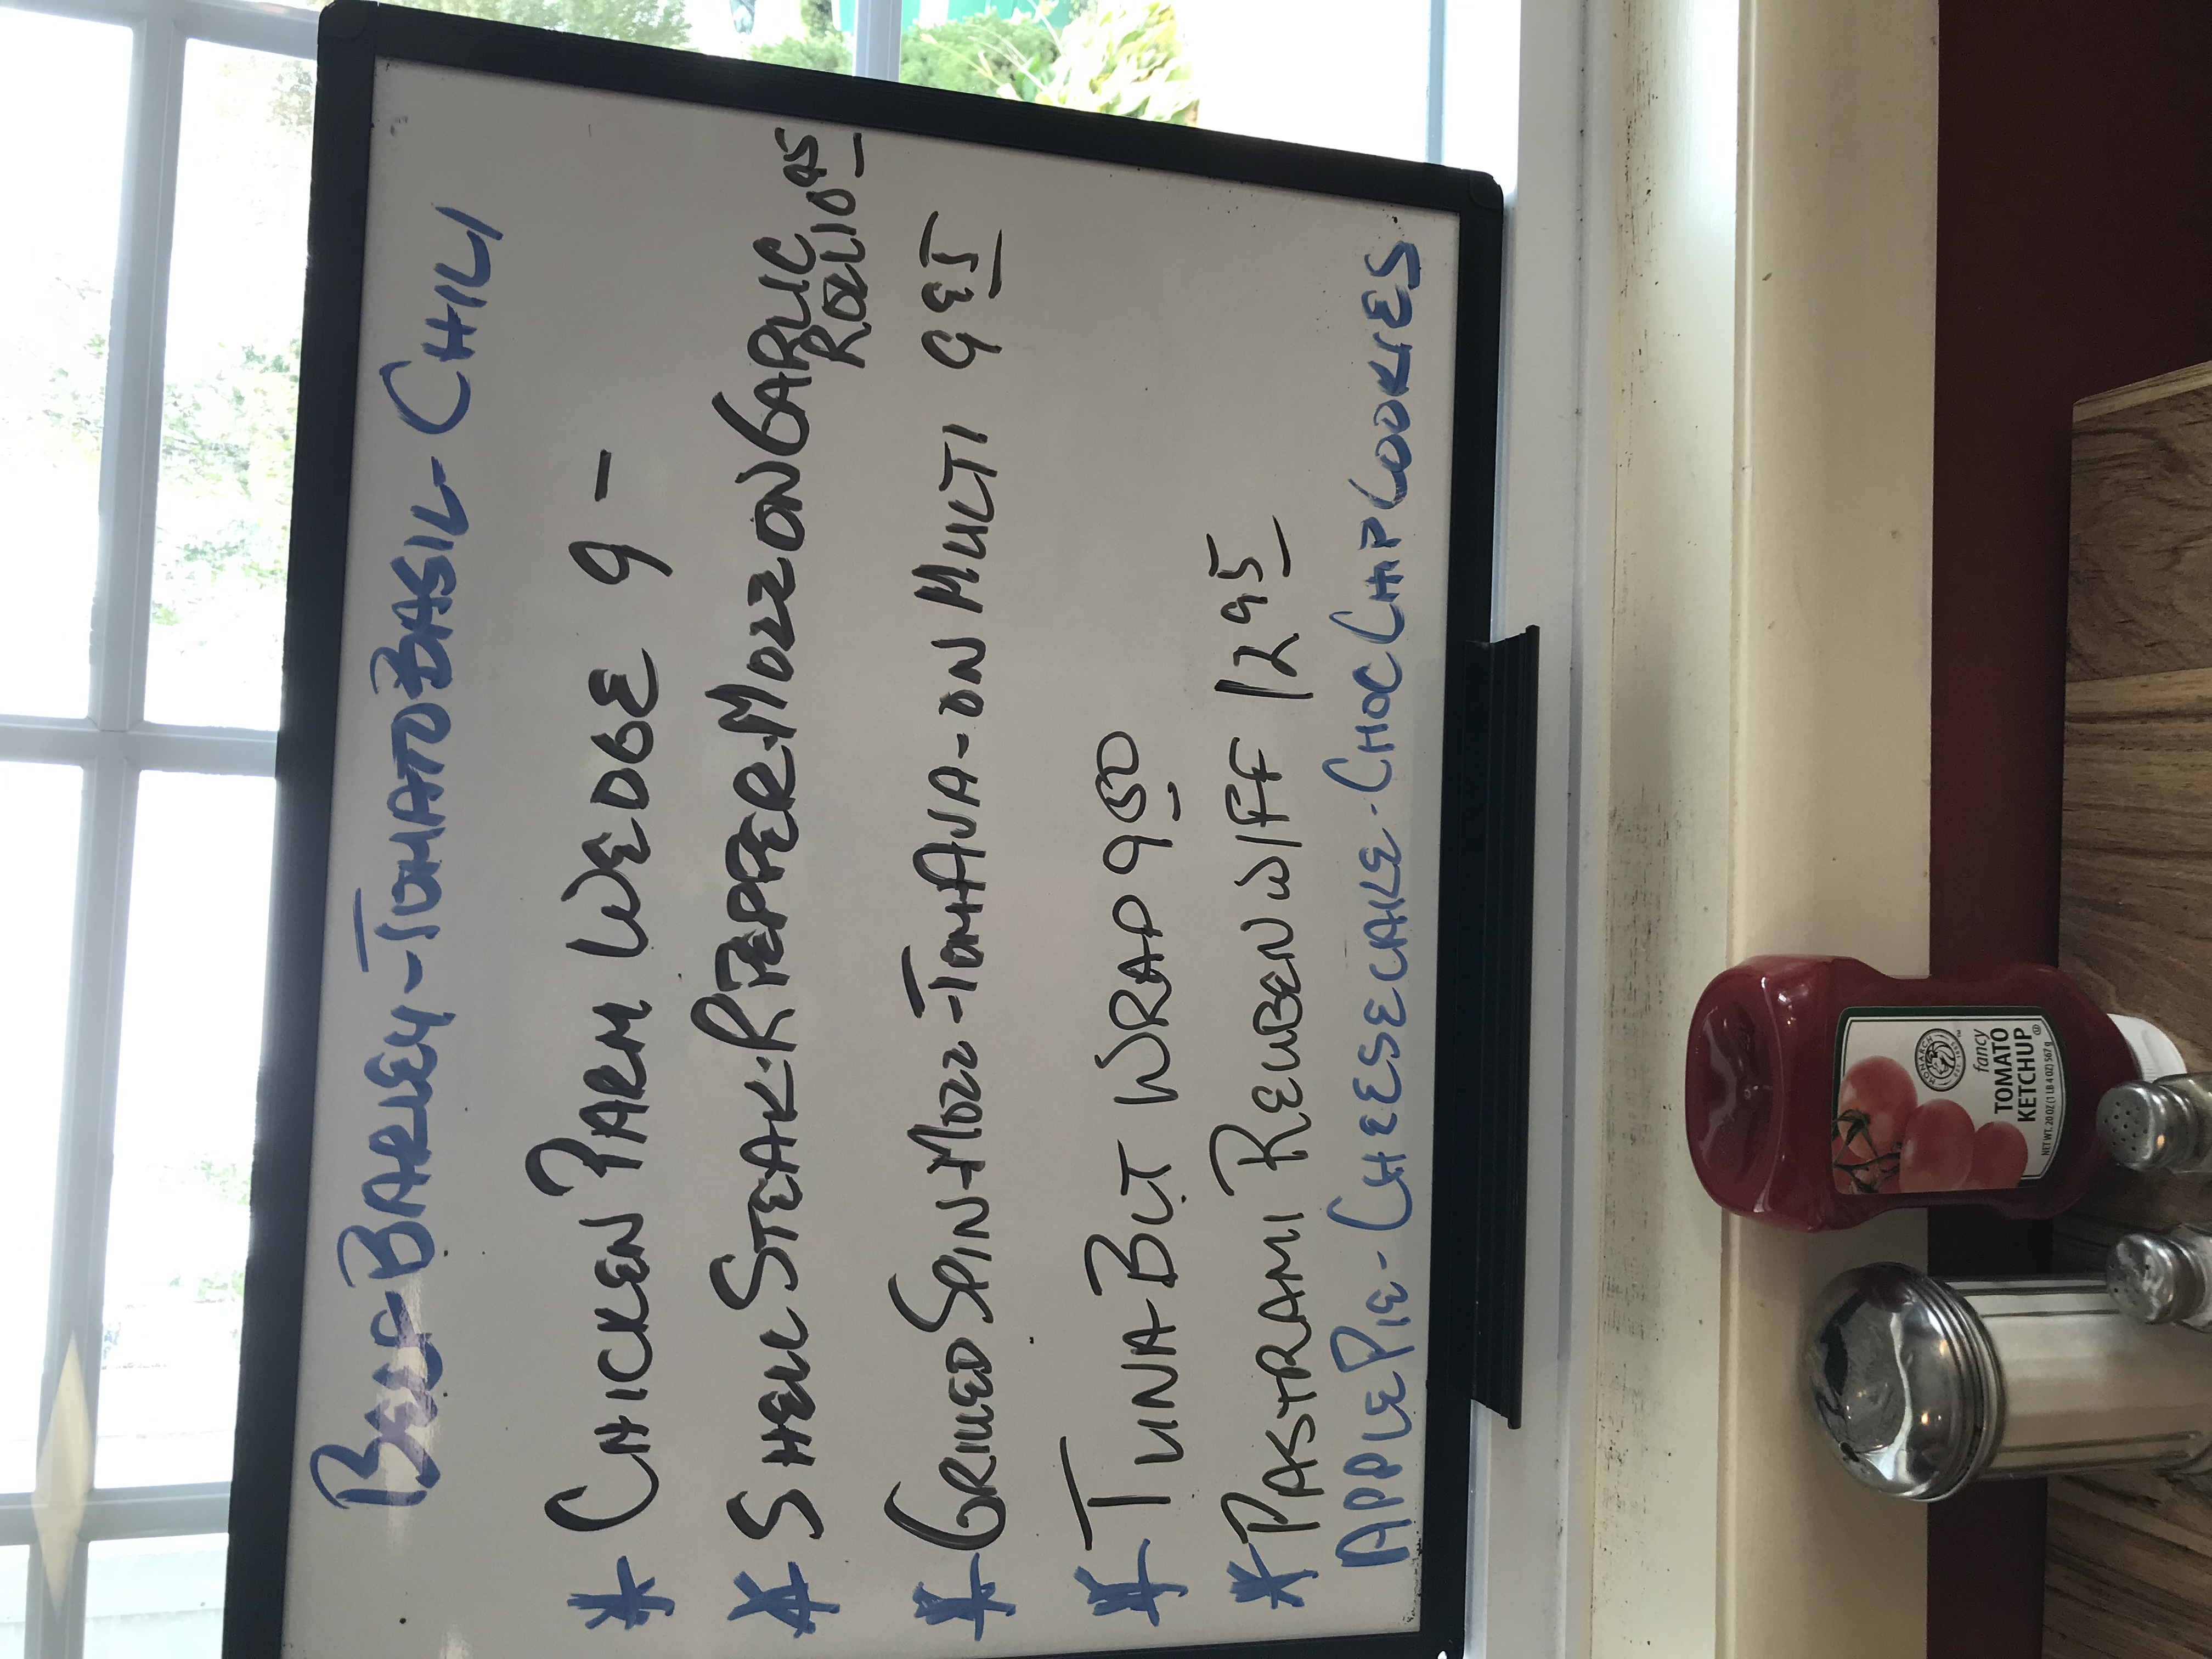 BEEF BARLEY - TOMATO BASIL - CHILI
* CHICKEN PARM WEDGE 9 -
* SHELL STEAK. R PEPPER. MOZZ ON GARLIC
ROLL 10 95
* GRILLED SPIN - MOZZ - TOM AVA - ON MULTI 9 25
* TUNA BLT WRAP 9 50
* PASTRAMI REUBEN W/FF 12 95
APPLE PIE - CHEESECAKE - CHOC CHIP COOKIES
MONARCH
fancy
TOMATO
KETCHUP
NET WT. 20 OZ (1 LB 4 OZ) 567 g